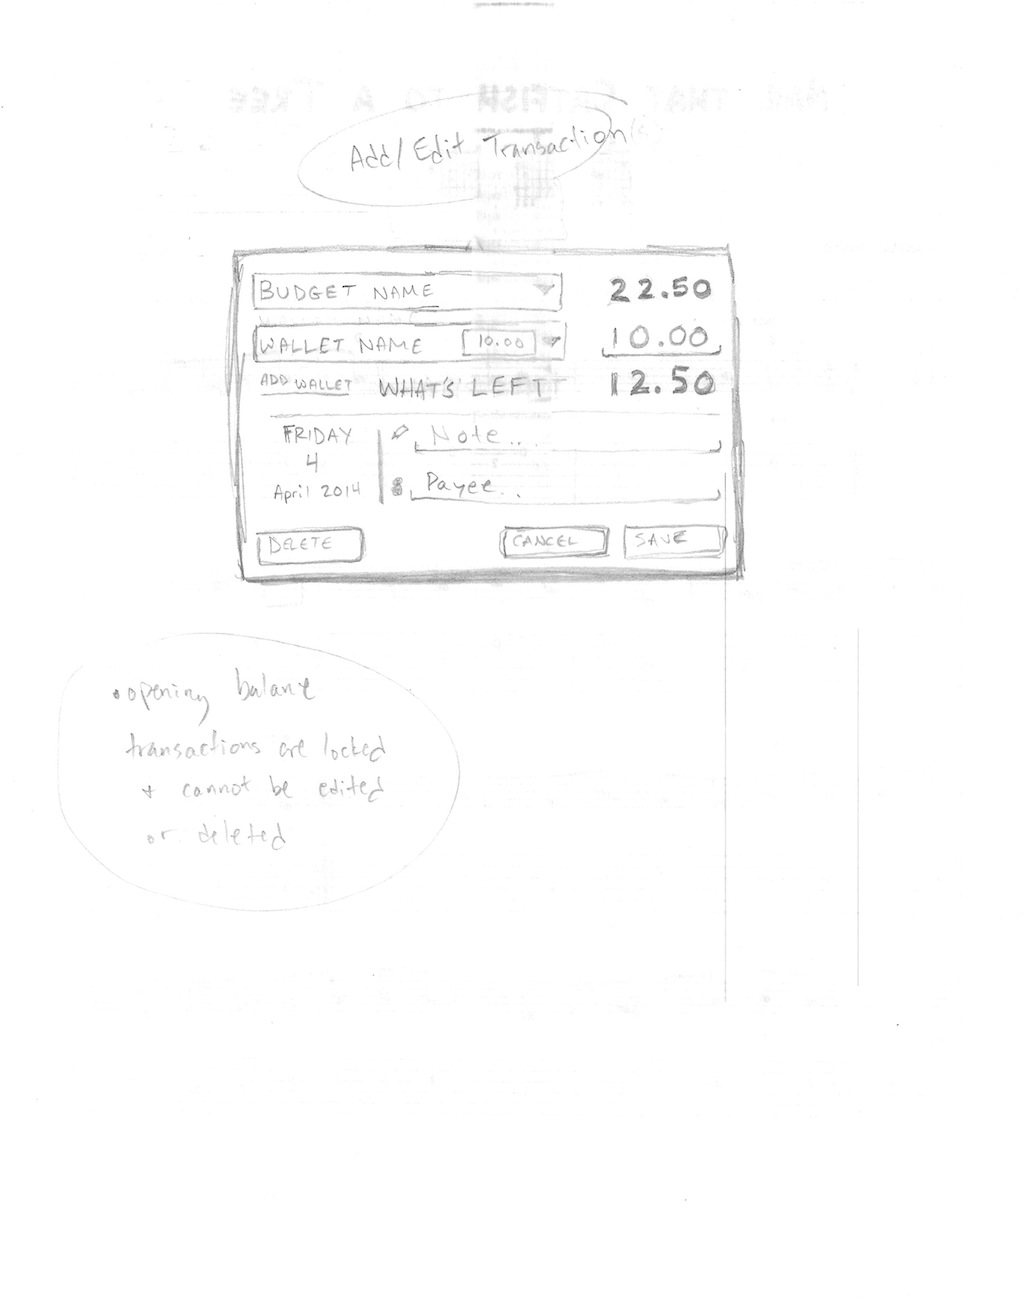 Add/Edit Transaction
BUDGET NAME 22.50
WALLET NAME 10.00 10.00
ADD WALLET WHAT'S LEFT 12.50
FRIDAY
4
April 2014
Note...
Payee...
DELETE CANCEL SAVE
• opening balance
transactions are locked
+ cannot be edited
or deleted